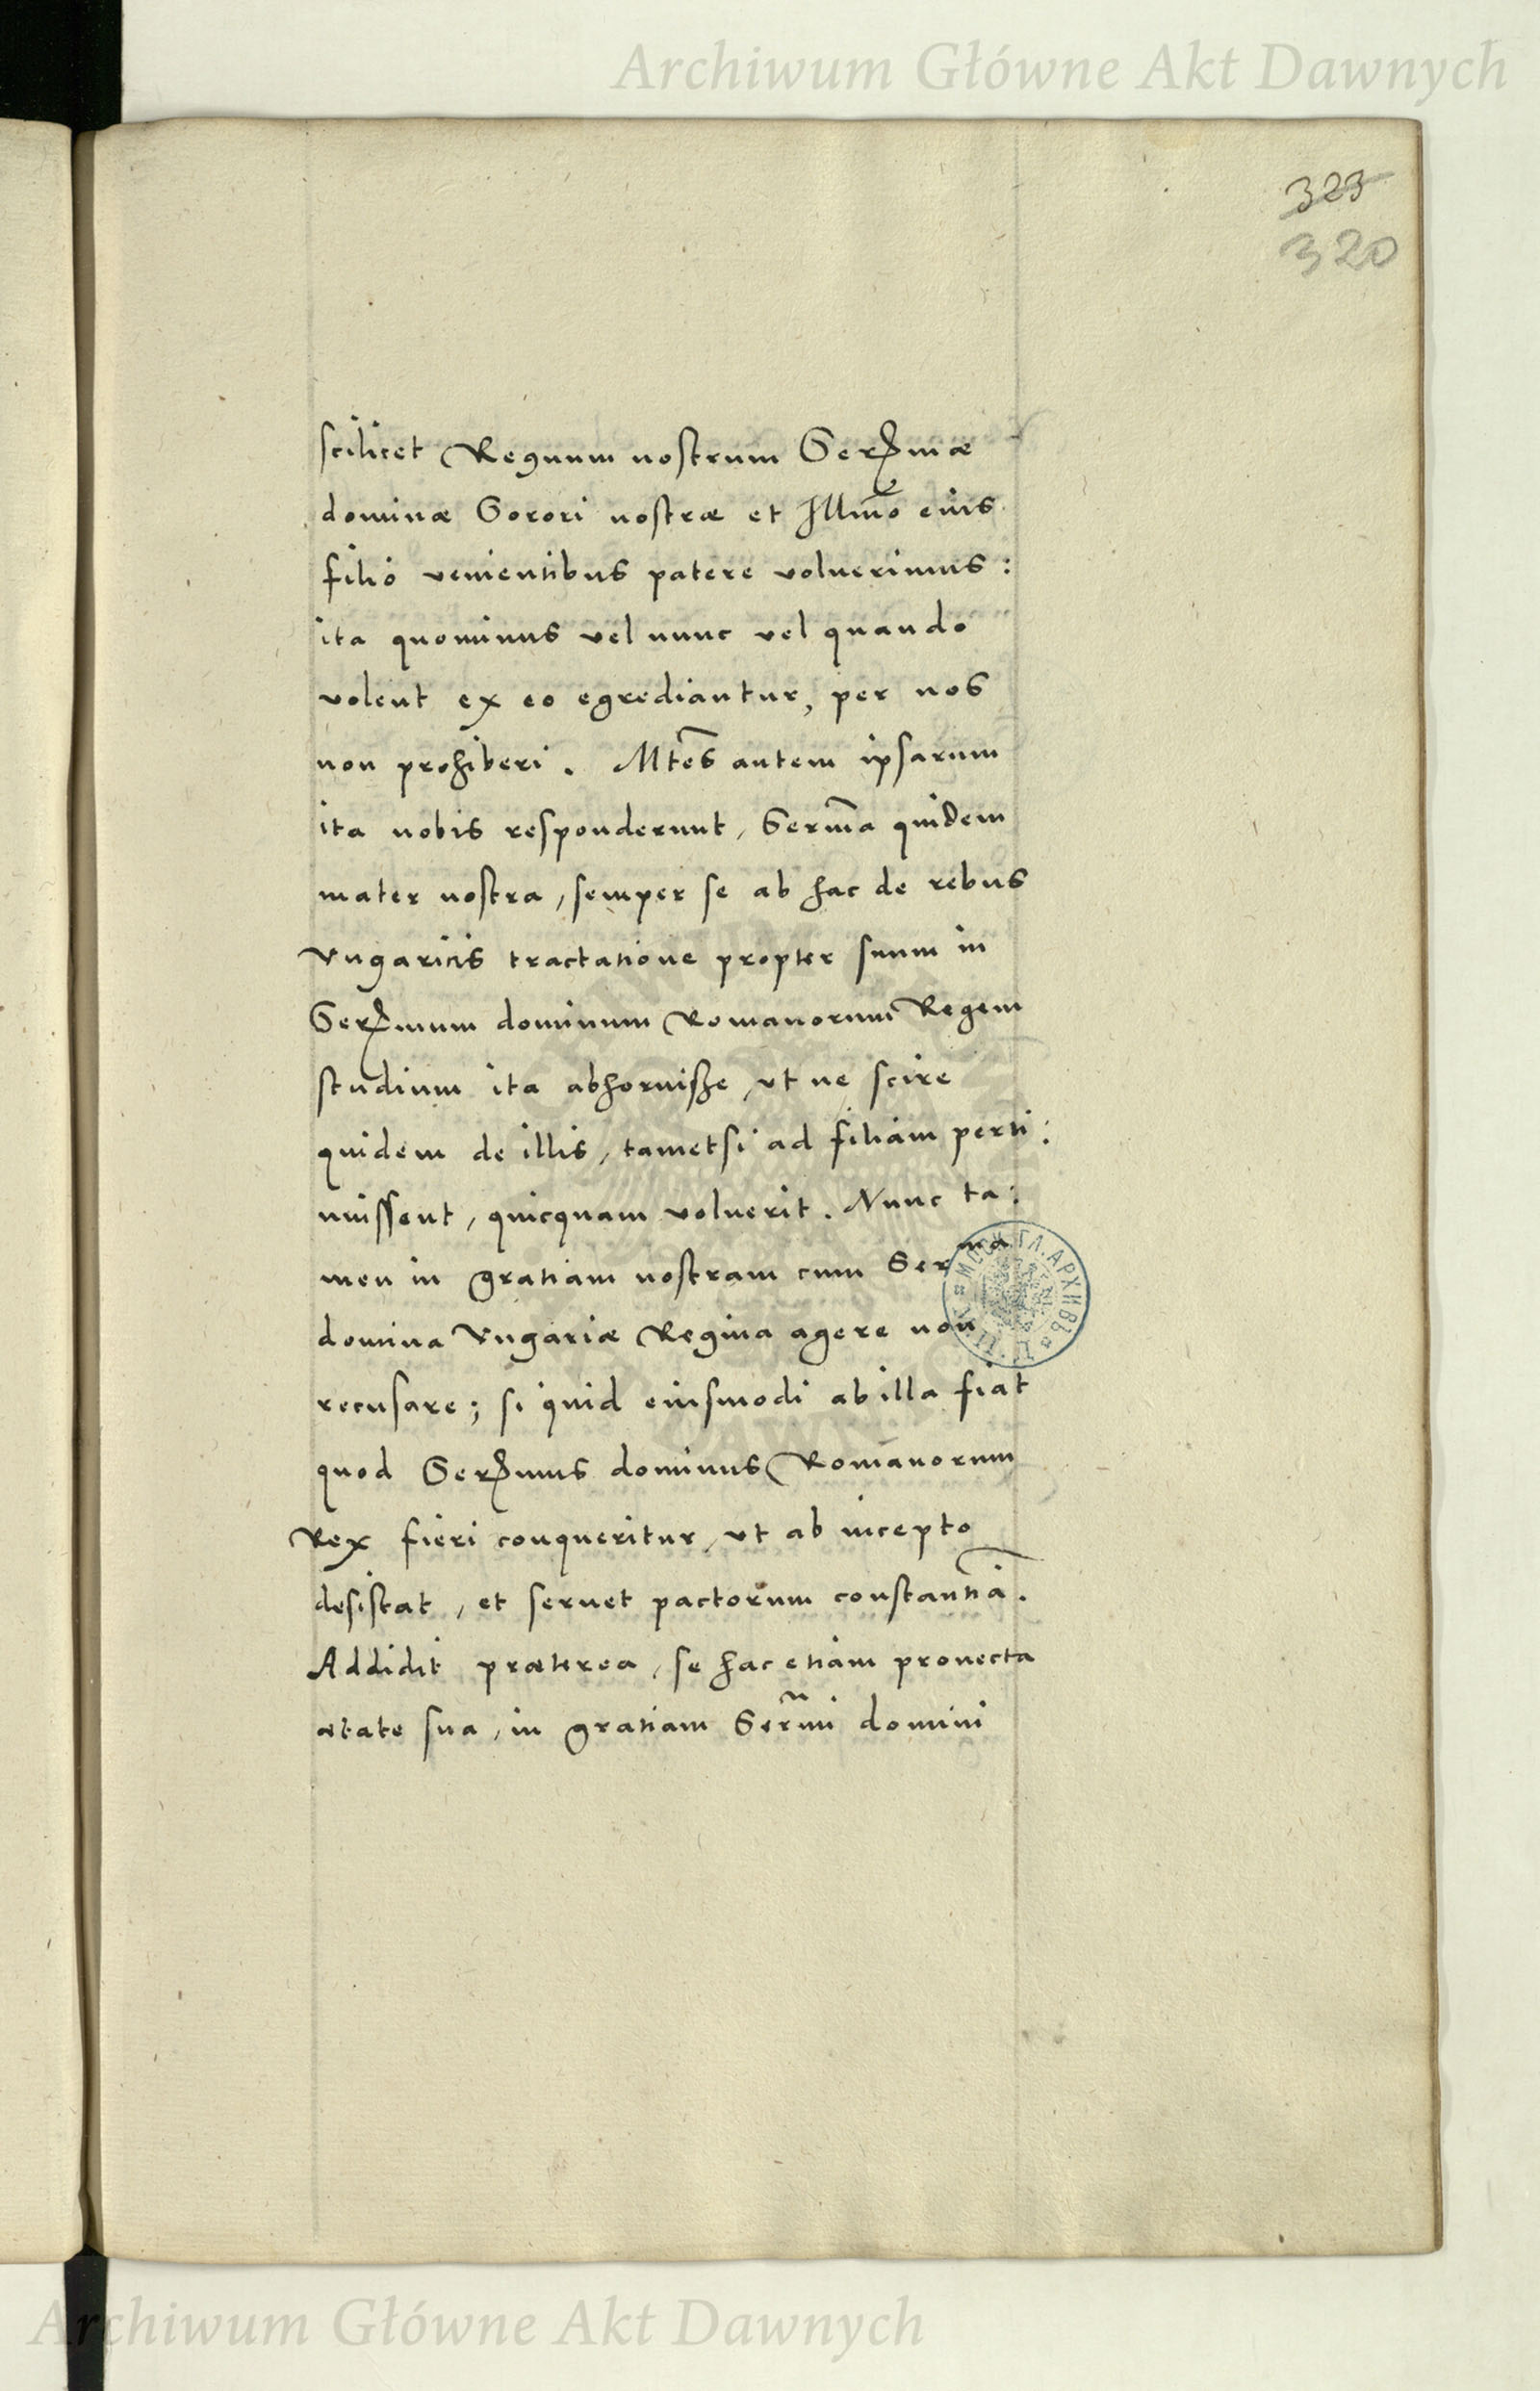 Archiwum Główne Akt Dawnych
323
320
scilicet Regnum nostrum Serᵐæ
dominæ Sorori nostræ et Illmo eius
filio venientibus patere voluerimus :
ita quominus vel nunc vel quando
volent ex eo egrediantur, per nos
non prohiberi . Mtes autem ipsarum
ita nobis responderunt, Serma quidem
mater nostra, semper se ab hac de rebus
Vngaricis tractatione propter suum in
Sermum dominum Romanorum Regem
studium ita abhoruisse, vt ne scire
quidem de illis, tametsi ad filiam perti:
nuissent, quicquam voluerit. Nunc ta:
men in gratiam nostram cum Serma
domina Vngariæ Regina agere non
recusare; si quid eiusmodi ab illa fiat
quod Sermus dominus Romanorum
Rex fieri conqueritur, vt ab incepto
desistat, et seruet pactorum constantiã.
Addidit præterea, se hac etiam prouecta
ætate sua, in gratiam Sermi domini
Archiwum Główne Akt Dawnych